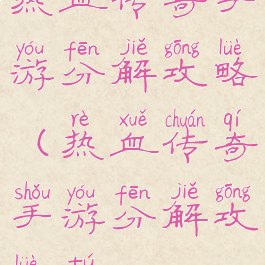 热血传奇手
yóu fēn jiě gōng lüè
游分解攻略
rè xuě chuán qí
（热血传奇
shǒu yóu fēn jiě gōng
手游分解攻
lüè tú